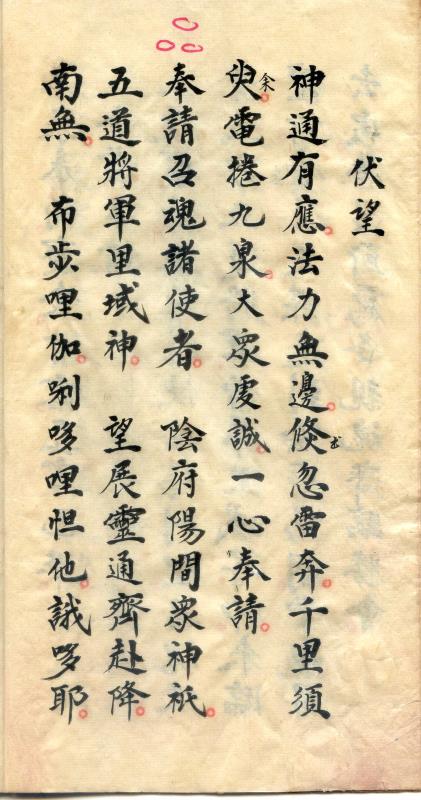 伏望
神通有應。法力無邊。倐忽雷奔。千里須
臾。電捲九泉。大眾虔誠。一心奉請。
奉請召魂諸使者。 陰府陽間眾神祇。
五道將軍里域神。 望展靈通齊赴降。
南無。 布步哩伽唎哆哩怛他。誐哆耶。